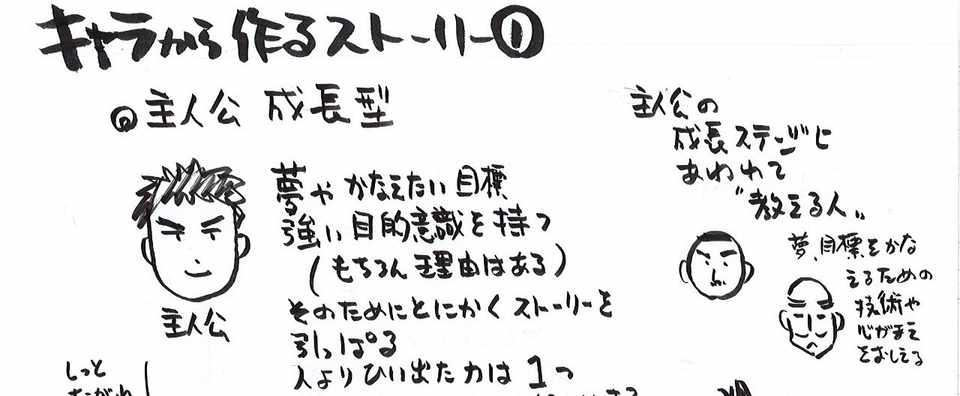 キャラから作るストーリー①
◎主人公 成長型
夢やかなえたい目標
強い目的意識を持つ
(もちろん理由はある)
そのためにとにかくストーリーを
引っぱる
人よりひい出た力は1つ
主人公
しっと
主人公の
成長ステージに
あわわて
"教える人"
夢、目標をかな
えるための
技術や
心がまえ
をおしえる